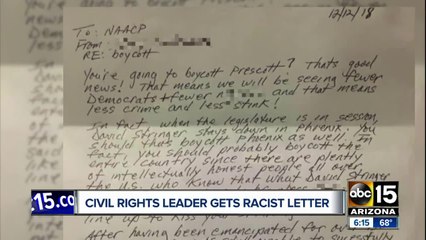 12/12/18
To: NAACP
From:
RE: boycott
You're going to boycott Prescott? Thats good
news! That means we will be seeing fewer
Democrats + fewer n and that means
less crime and less stink!
In fact when the legislature is in session,
David Stringer stays down in Phoenix. You
should thus boycott Phoenix as well. In
fact, you should probably boycott the
entire country since there are plenty
of intellectually honest people all over
the U.S. who know that what David Stringer
line up to kiss your
After having been emancipated for ov
15.co
CIVIL RIGHTS LEADER GETS RACIST LETTER
abc 15
ARIZONA
6:15 68°